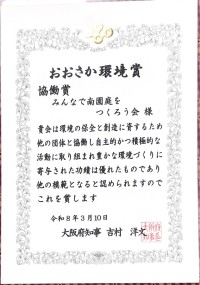 おおさか環境賞
協働賞
みんなで南園庭を
つくろう会 様
貴会は環境の保全と創造に資するため
他の団体と協働し自主的かつ積極的な
活動に取り組まれ豊かな環境づくりに
寄与された功績は優れたものであり
他の模範となると認められますので
これを賞します
令和8年3月10日
大阪府知事 吉村 洋文